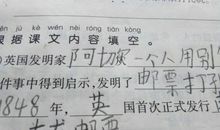 jù kè wén nèi róng tián kòng
根据课文内容填空。
英国发明家阿切尔一个人用别
件事中得到启示,发明了邮票打
1848年,英国首次正式发行
邮票